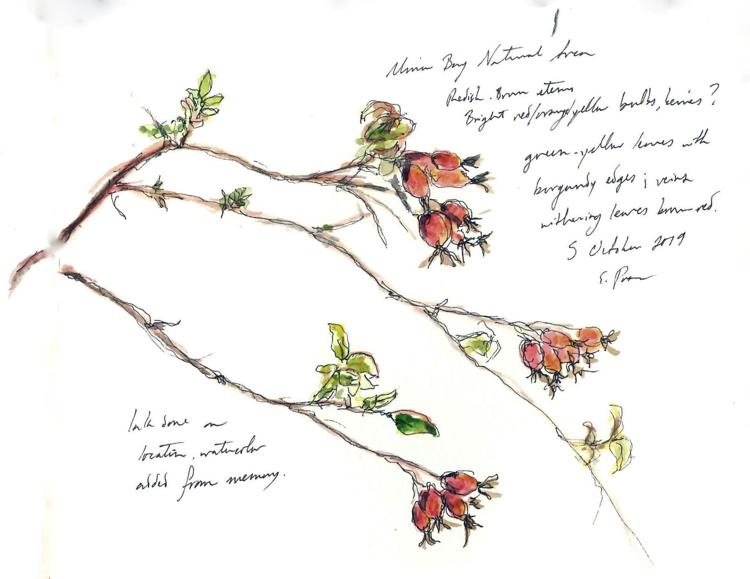 Natural Area
Redish-Brown stems
Bright red/orange/yellow bulbs, berries?
green-yellow leaves with
burgundy edges; veins
withering leaves brown red.
5 October 2019
E.
Ink done on
location, watercolor
added from memory.